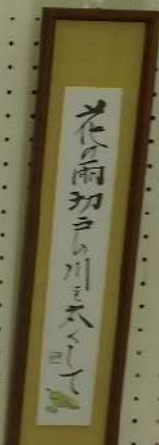 花の雨切戸の川を太くして